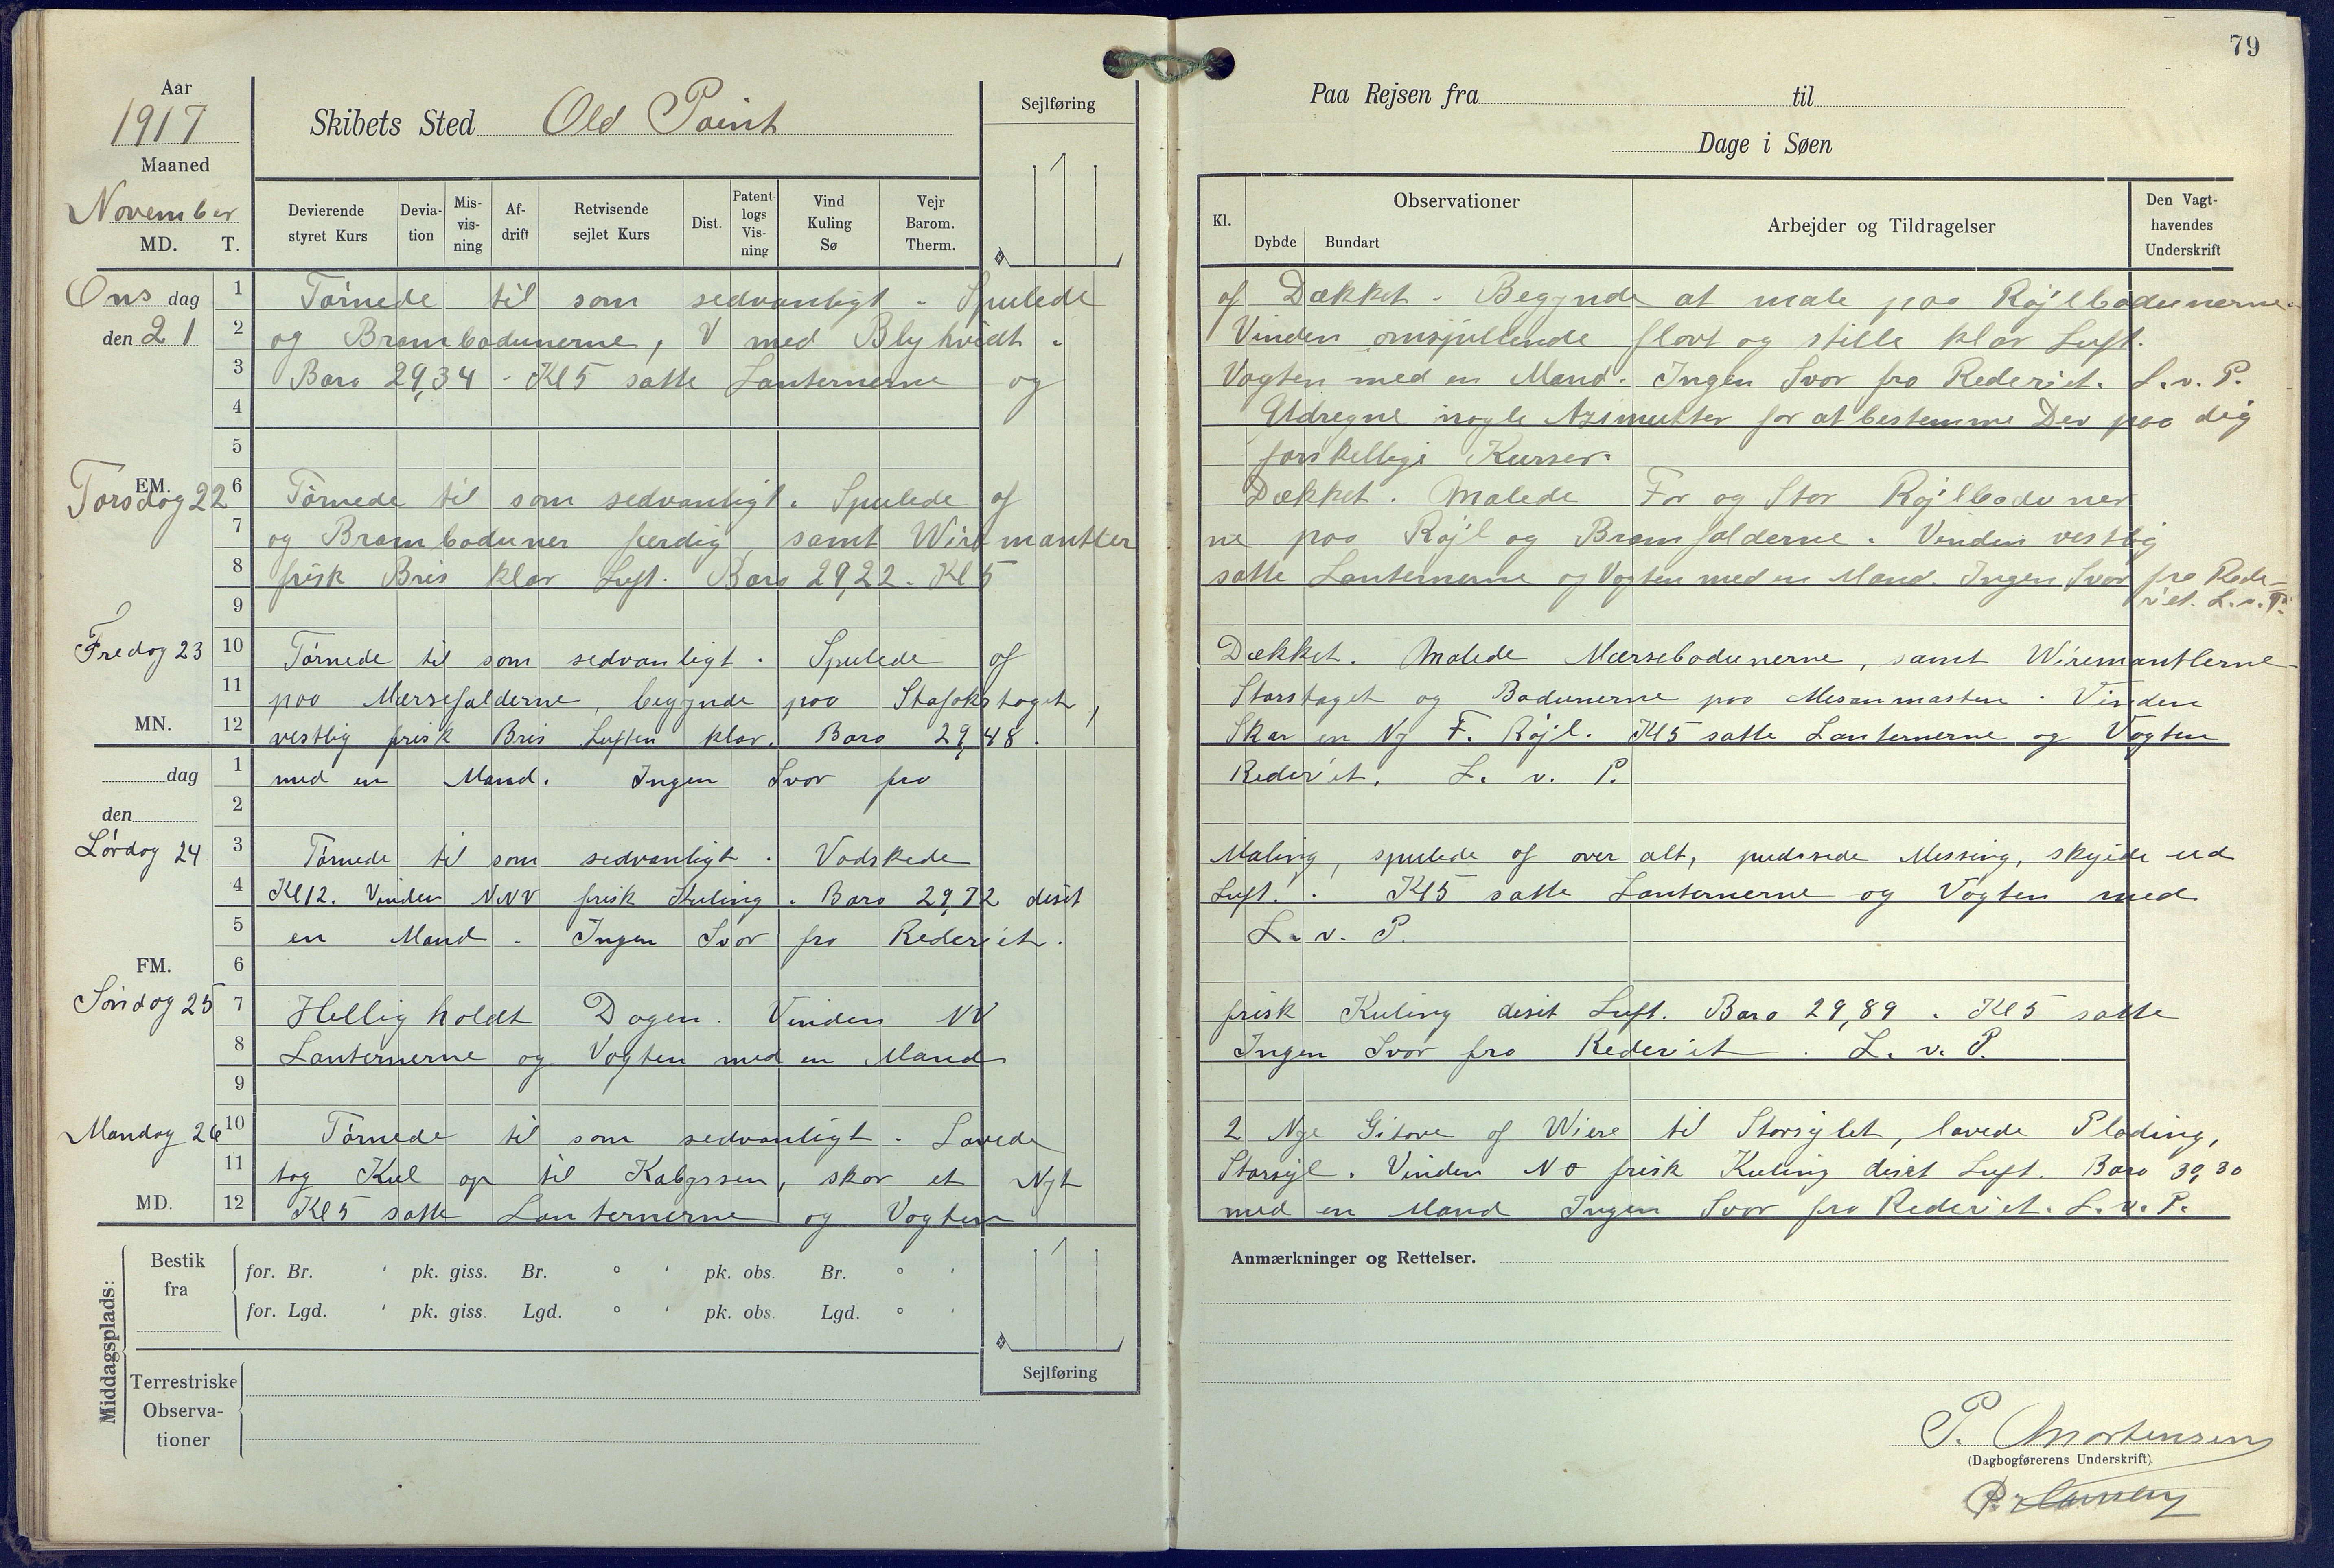 79
Aar
1917
Maaned
November
MD. T.
Skibets Sted Old Point
Sejlføring
Devierende styret Kurs
Deviation
Misvisning
Afdrift
Retvisende sejlet Kurs
Dist.
Patentlogs Visning
Vind Kuling Sø
Vejr Barom. Therm.
Paa Rejsen fra til
Dage i Søen
Kl.
Observationer
Dybde Bundart
Arbejder og Tildragelser
Den Vagthavendes Underskrift
Onsdag den 21
1 Tørnede til som sedvanligt. Spulede af Dækket. Begynde at male paa Røjlbadunerne.
2 og Brambadunerne, V med Blyhvidt. Vinden omspillende flovt og stille klar Luft.
3 Baro 29,34 - Kl 5 satte Lanternerne og Vagten med en Mand. Ingen Svar fra Rederiet. L.v.P.
4 Udregne nogle Azimutter for at bestemme Dev paa dig
5 forskellige Kurser.
EM.
Torsdag 22
6 Tørnede til som sedvanligt. Spulede af Dækket. Malede For og Stor Røjlbaduner
7 og Brambaduner færdig, samt Wiremantlerne paa Røjl og Bramfalderne. Vinden vestlig
8 frisk Bris klar Luft. Baro 29,22. Kl. 5 satte Lanternerne og Vagten med en Mand. Ingen Svar fra Rederiet. L.v.P.
9
Fredag 23
10 Tørnede til som sedvanligt. Spulede af Dækket. Malede Mærsebadunerne, samt Wiremantlerne
11 paa Mærsefalderne, begynde paa Stafokstaget, Storstaget og Badunerne paa Mesanmasten. Vinden
MN.
12 vestlig frisk Bris Luften klar. Baro 29,48. Skar en Ny F. Røjl. Kl 5 satte Lanternerne og Vagten
dag
den
1 med en Mand. Ingen Svar fra Rederiet. L. v. P.
2
Lørdag 24
3 Tørnede til som sedvanligt. Vadskede Maling, spulede af over alt, pudssede Messing, skejde ud
4 Kl 12. Vinden NNV frisk Kuling. Baro 29,72 diset Luft. Kl 5 satte Lanternerne og Vagten med
5 en Mand. Ingen Svar fra Rederiet. L. v. P.
FM.
6
Søndag 25
7 Helligholdt Dagen. Vinden NV frisk Kuling diset Luft. Baro 29,89. Kl 5 satte
8 Lanternerne og Vagten med en Mand Ingen Svar fra Rederiet. L. v. P.
9
Mandag 26
10 Tørnede til som sedvanligt. Lavede 2 Nye Gitove af Wiere til Storsejlet, lavede Plading,
11 tog Kul op til Kabyssen, skar et Nyt Storsejl. Vinden NO frisk Kuling diset Luft. Baro 30,30
MD.
12 Kl 5 satte Lanternerne og Vagten med en Mand Ingen Svar fra Rederiet. L. v. P.
Middagsplads:
Bestik fra
for. Br. ' pk. giss. Br. ° ' pk. obs. Br. ° '
for. Lgd. ' pk. giss. Lgd. ° ' pk. obs. Lgd. ° '
Sejlføring
Terrestriske Observationer
Anmærkninger og Rettelser.
P. Mortensen
(Dagbogførerens Underskrift).